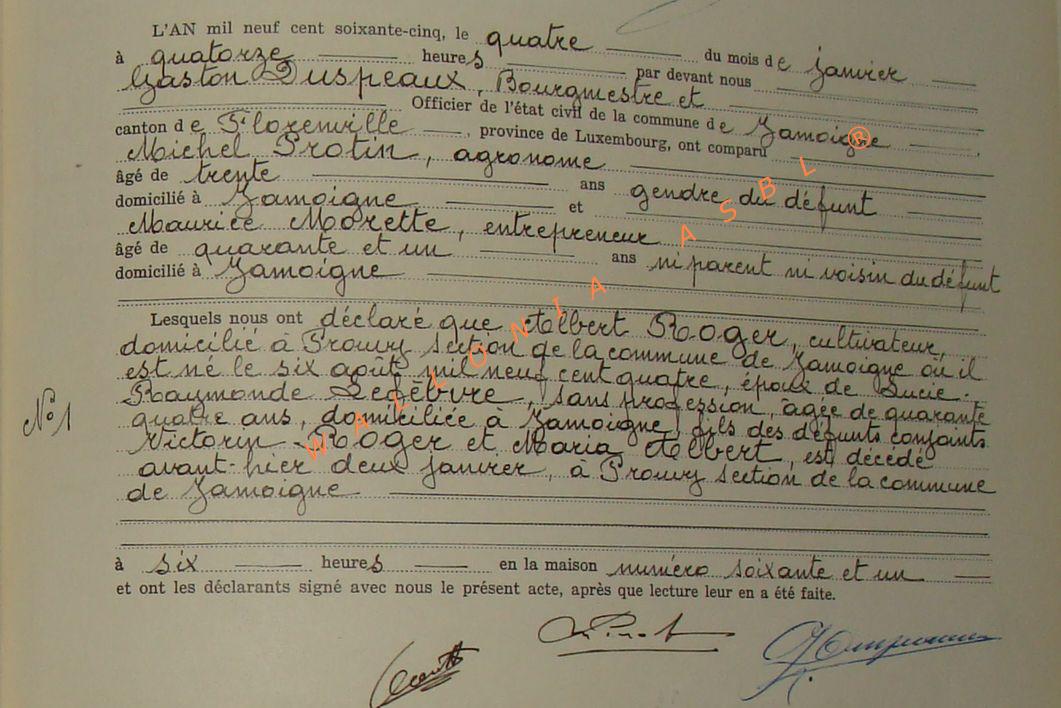 L'AN mil neuf cent soixante-cinq, le quatre du mois de janvier
à quatorze heures par devant nous
Gaston Duspeaux, Bourgmestre et
Officier de l'état civil de la commune de Jamoigne
canton de Florenville, province de Luxembourg, ont comparu
Michel Protin, agronome
âgé de trente ans gendre du défunt
domicilié à Jamoigne et
Maurice Morette, entrepreneur
âgé de quarante et un ans ni parent ni voisin du défunt
domicilié à Jamoigne
Lesquels nous ont déclaré que Albert ROGER, cultivateur,
domicilié à Prouvy section de la commune de Jamoigne où il
est né le six août mil neuf cent quatre, époux de Lucie-
Raymonde Lefèbvre, sans profession, âgée de quarante
quatre ans, domiciliée à Jamoigne, fils des défunts conjoints
N° 1
Victorin ROGER et Maria Albert, est décédé
avant-hier deux janvier, à Prouvy section de la commune
de Jamoigne
à six heures en la maison numéro soixante et un
et ont les déclarants signé avec nous le présent acte, après que lecture leur en a été faite.
WALLONIA ASBL ®